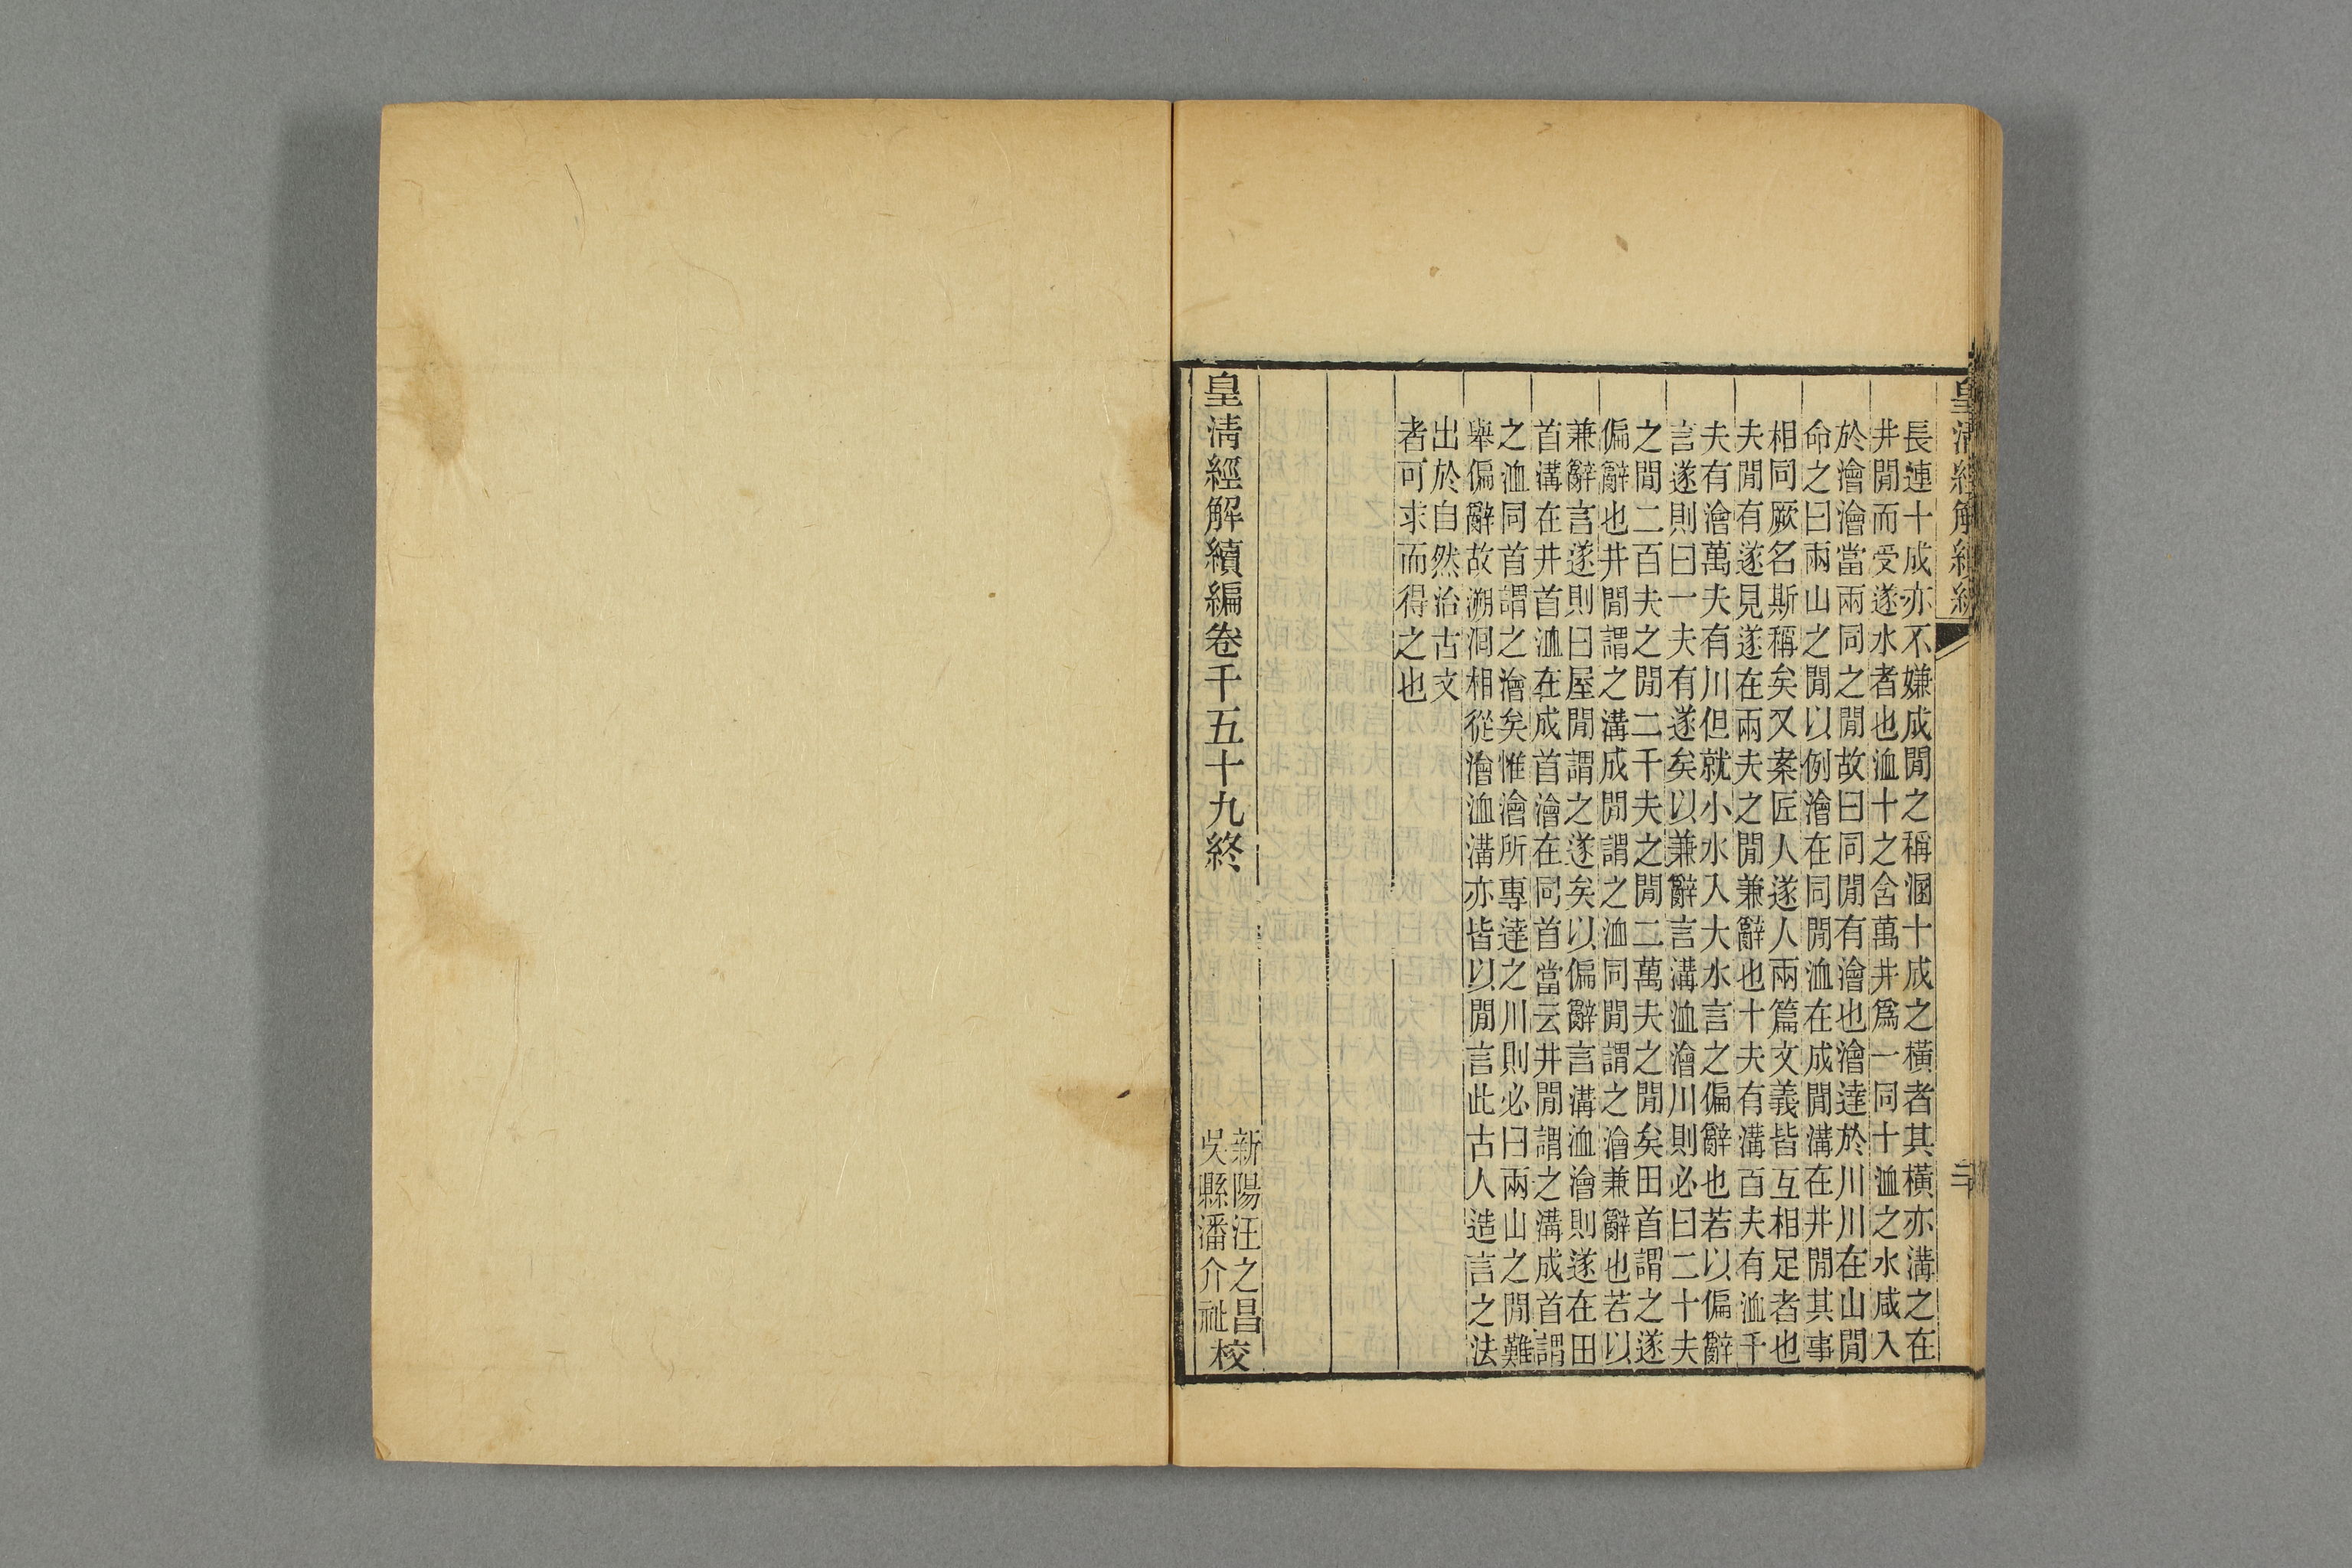 皇清經解續編
長連十成亦不嫌成閒之稱溷十成之橫者其橫亦溝之在
井閒而受遂水者也洫十之含萬井爲一同十洫之水咸入
於澮澮當兩同之閒故曰同閒有澮也澮達於川川在山閒
命之曰兩山之閒以例澮在同閒洫在成閒溝在井閒其事
相同厥名斯稱矣又案匠人遂人兩篇文義皆互相足者也
夫閒有遂見遂在兩夫之閒兼辭也十夫有溝百夫有洫千
夫有澮萬夫有川但就小水入大水言之偏辭也若以偏辭
言遂則曰一夫有遂矣以兼辭言溝洫澮川則必曰二十夫
之閒二百夫之閒二千夫之閒二萬夫之閒矣田首謂之遂
偏辭也井閒謂之溝成閒謂之洫同閒謂之澮兼辭也若以
兼辭言遂則曰屋閒謂之遂矣以偏辭言溝洫澮則遂在田
首溝在井首洫在成首澮在同首當云井閒謂之溝成首謂
之洫同首謂之澮矣惟澮所專達之川則必曰兩山之閒難
舉偏辭故溯洄相從澮洫溝亦皆以閒言此古人造言之法
出於自然治古文
者可求而得之也
皇清經解續編卷千五十九終
新陽汪之昌
吳縣潘介祉
校